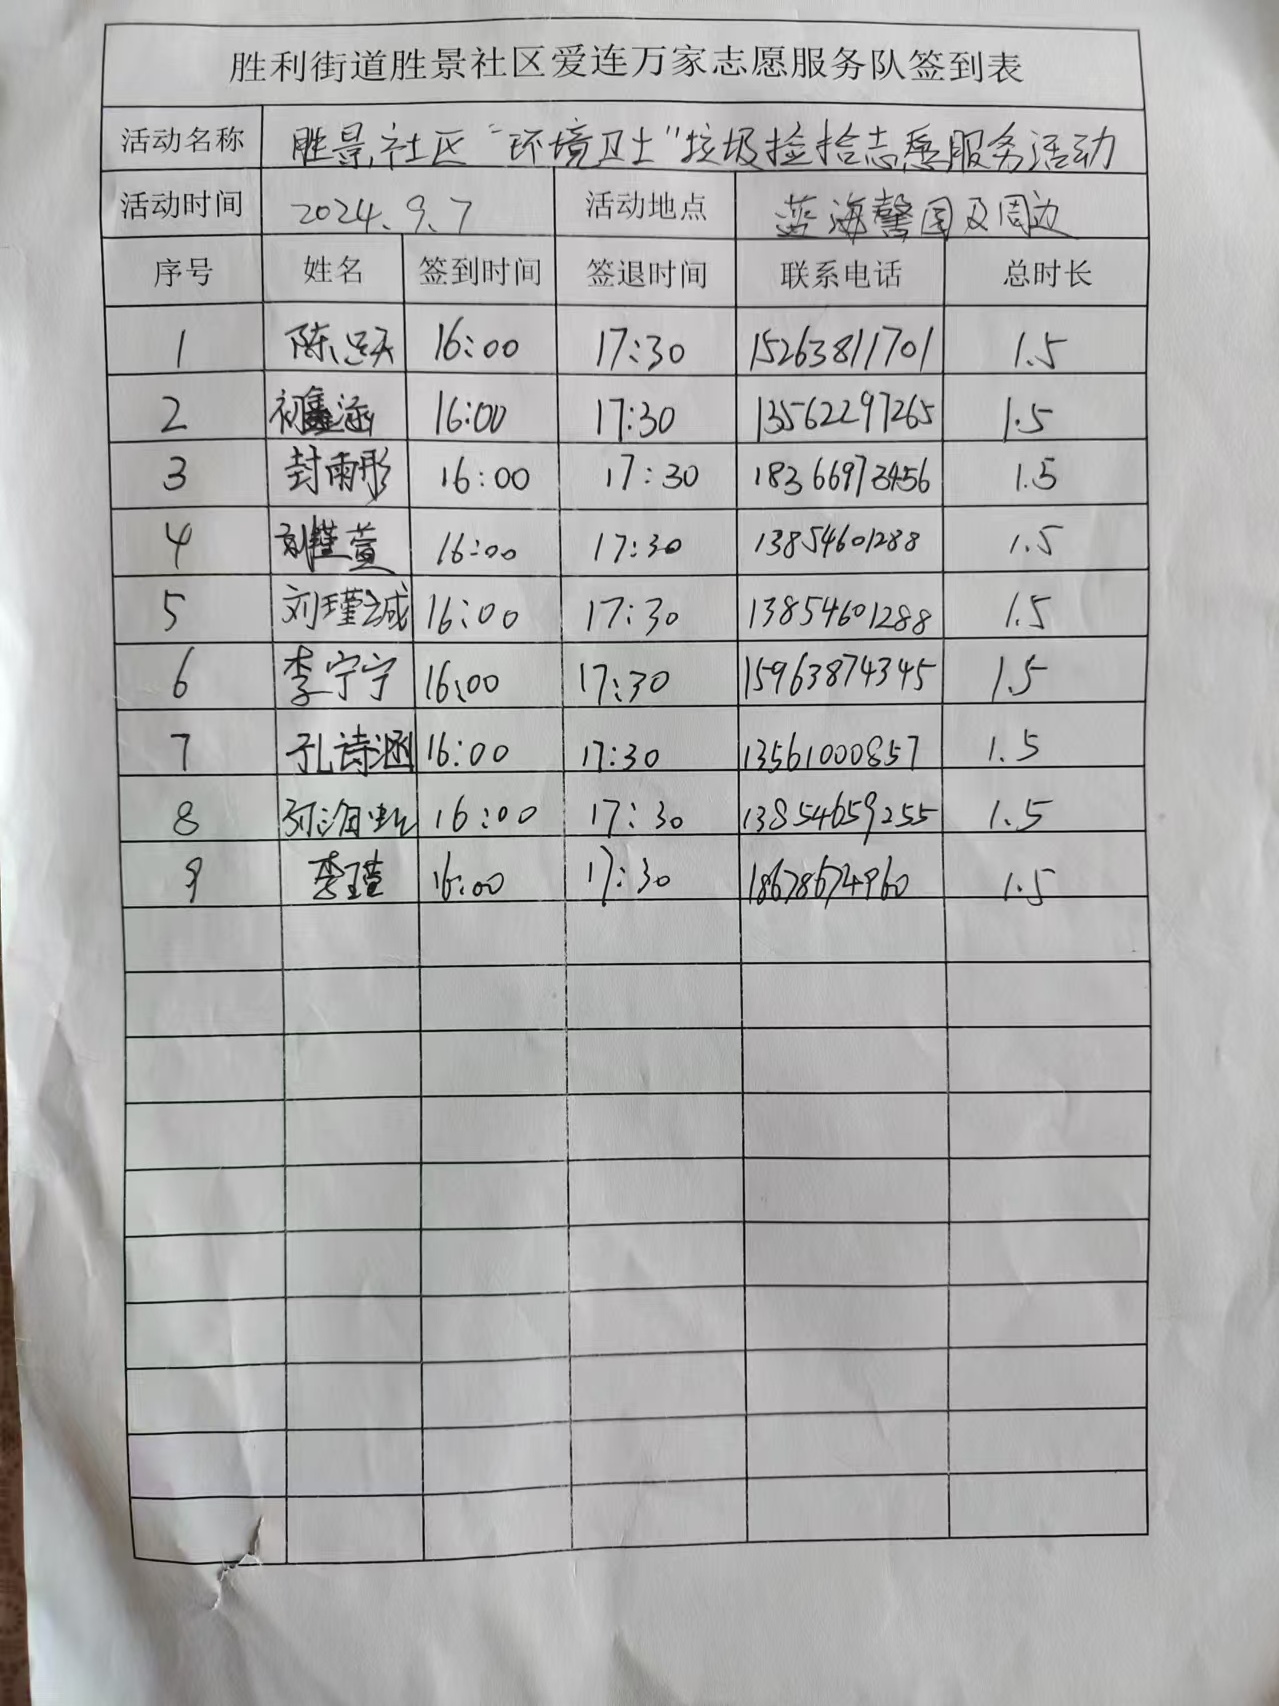 胜利街道胜景社区爱连万家志愿服务队签到表
活动名称 胜景社区“环境卫士”垃圾捡拾志愿服务活动
活动时间 2024.9.7 活动地点 蓝海馨园及周边
序号 姓名 签到时间 签退时间 联系电话 总时长
1 陈 16:00 17:30 15263811701 1.5
2 初 涵 16:00 17:30 13562297265 1.5
3 封雨彤 16:00 17:30 18366973456 1.5
4 刘瑾萱 16:00 17:30 13854601288 1.5
5 刘瑾诚 16:00 17:30 13854601288 1.5
6 李宁宁 16:00 17:30 15963874345 1.5
7 孔诗涵 16:00 17:30 13561000857 1.5
8 16:00 17:30 13854659255 1.5
9 李瑾 16:00 17:30 18678674960 1.5